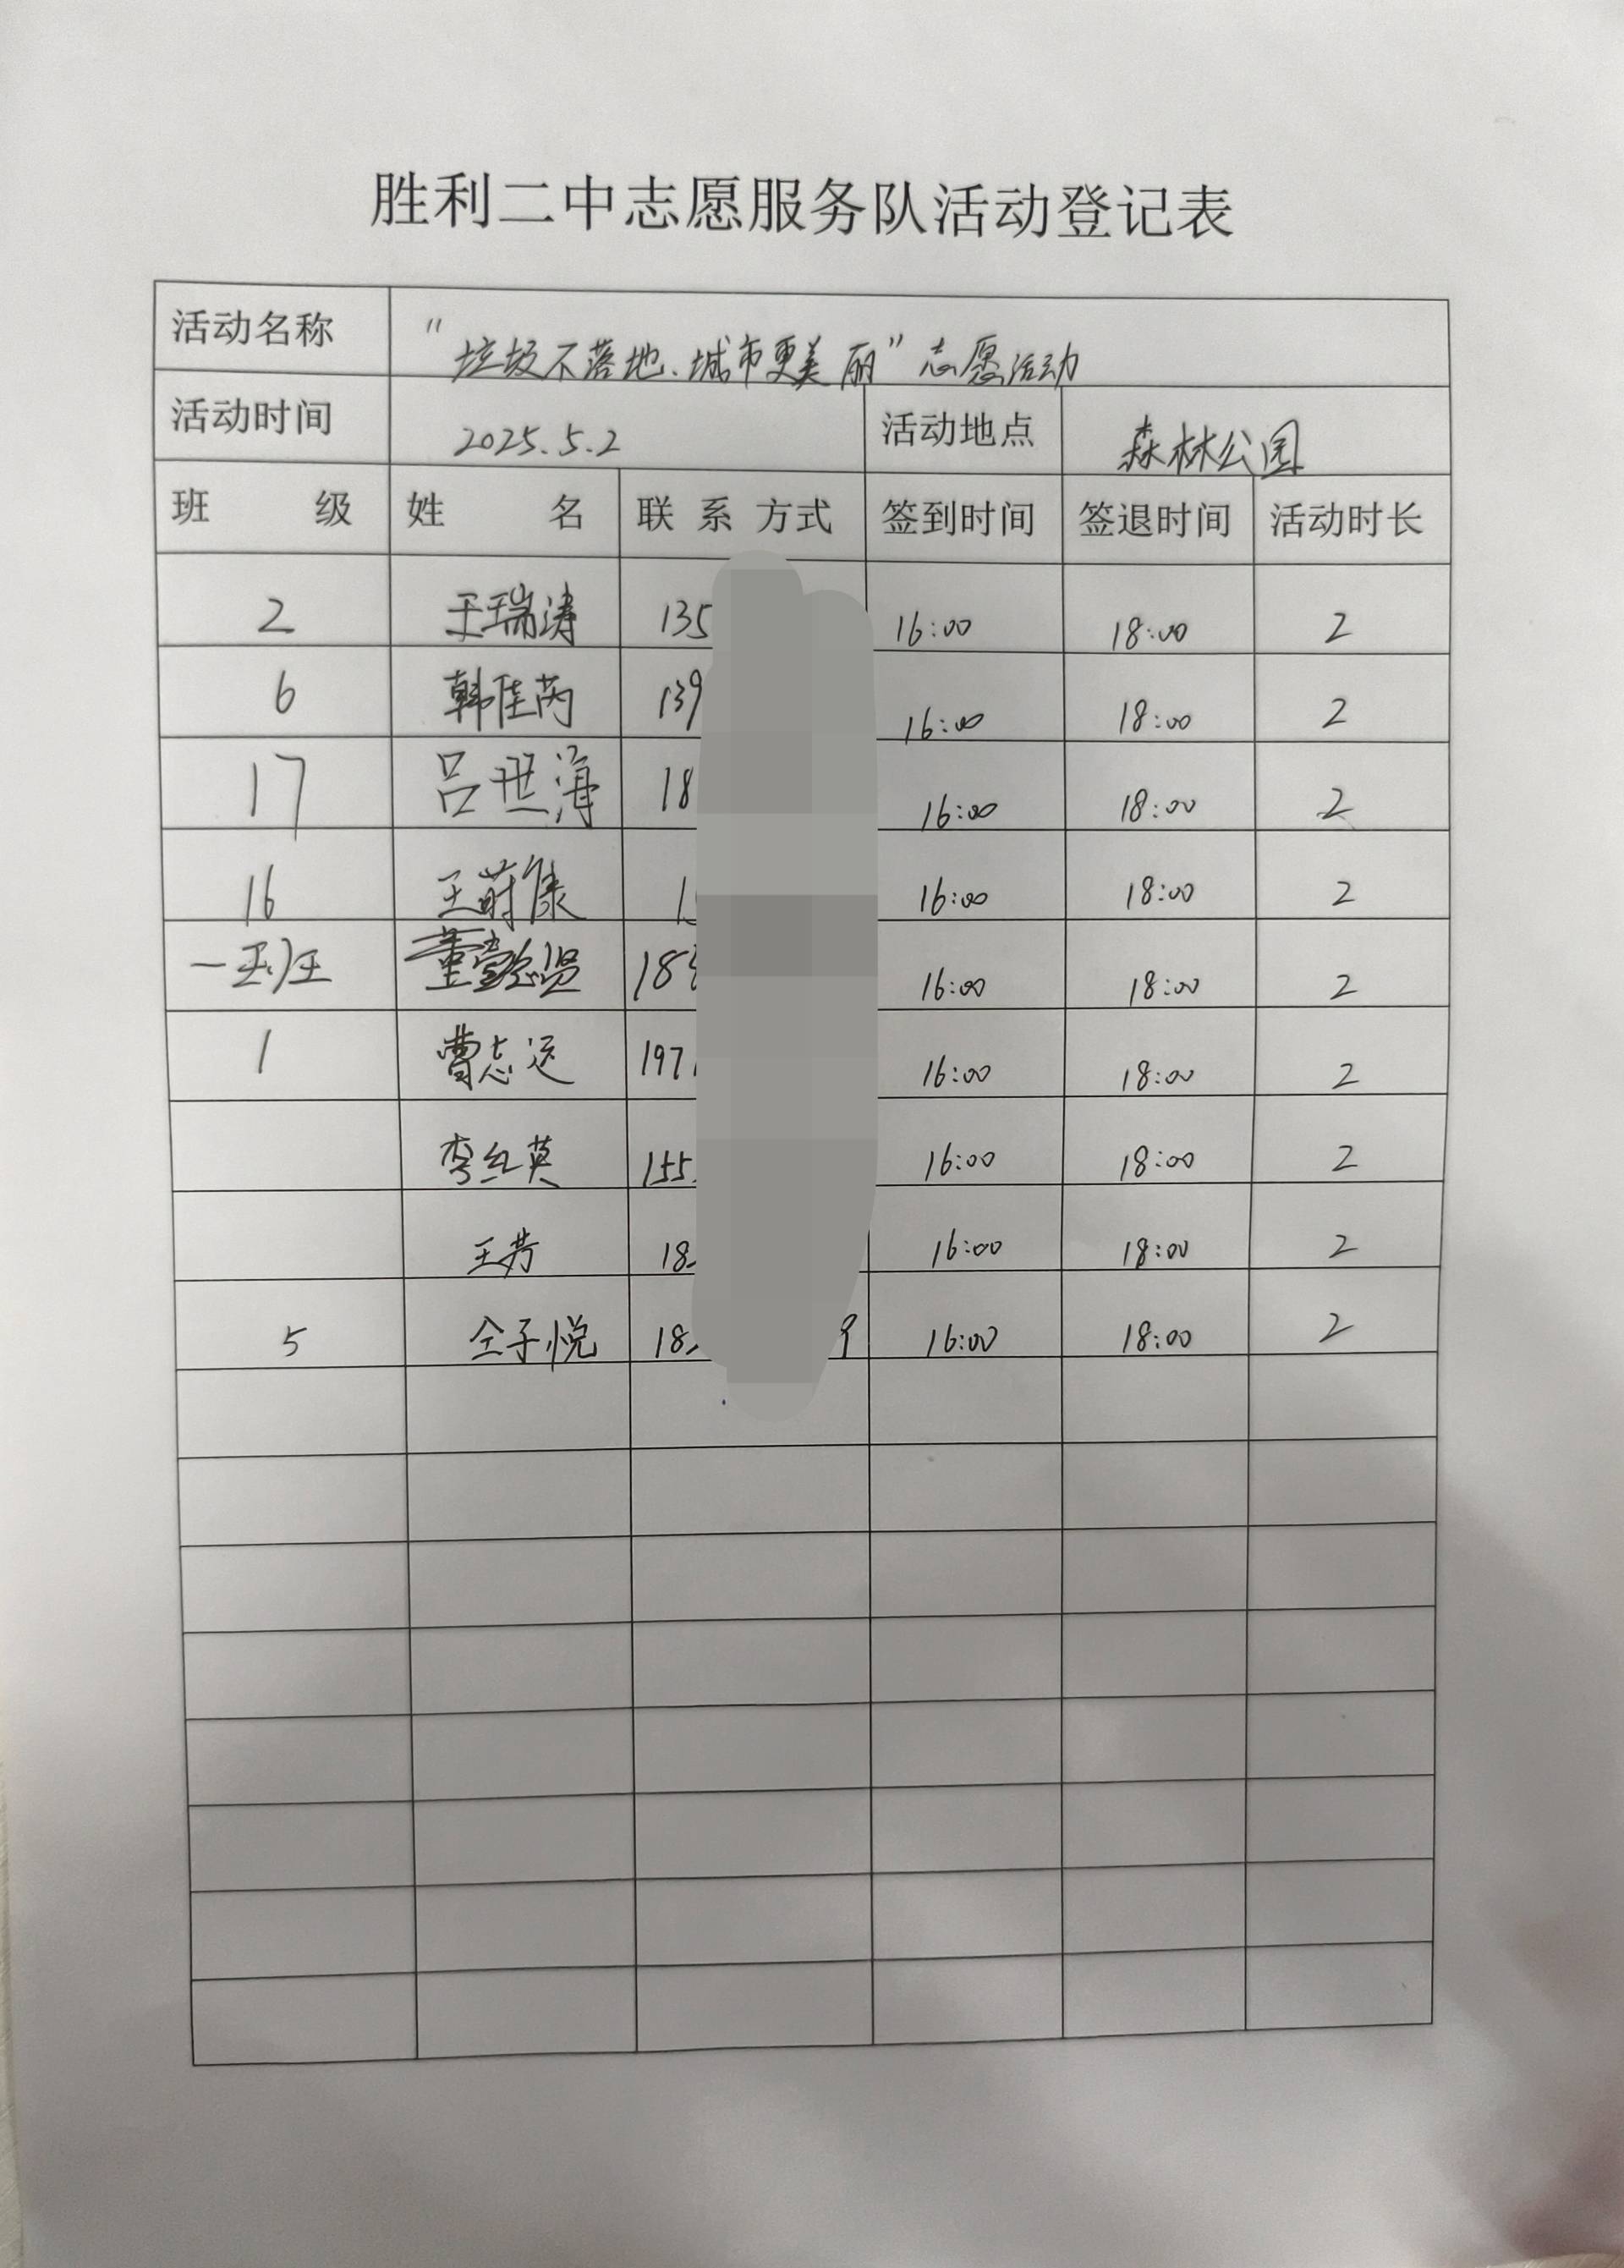 胜利二中志愿服务队活动登记表
活动名称 "垃圾不落地、城市更美丽"志愿活动
活动时间 2025.5.2 活动地点 森林公园
班级 姓名 联系方式 签到时间 签退时间 活动时长
2 王瑞涛 135 16:00 18:00 2
6 韩佳芮 139 16:00 18:00 2
17 吕世海 18 16:00 18:00 2
16 王 康 1 16:00 18:00 2
董 18 16:00 18:00 2
1 曹志远 197 16:00 18:00 2
李红英 155 16:00 18:00 2
王芳 18 16:00 18:00 2
5 仝子悦 18 9 16:00 18:00 2